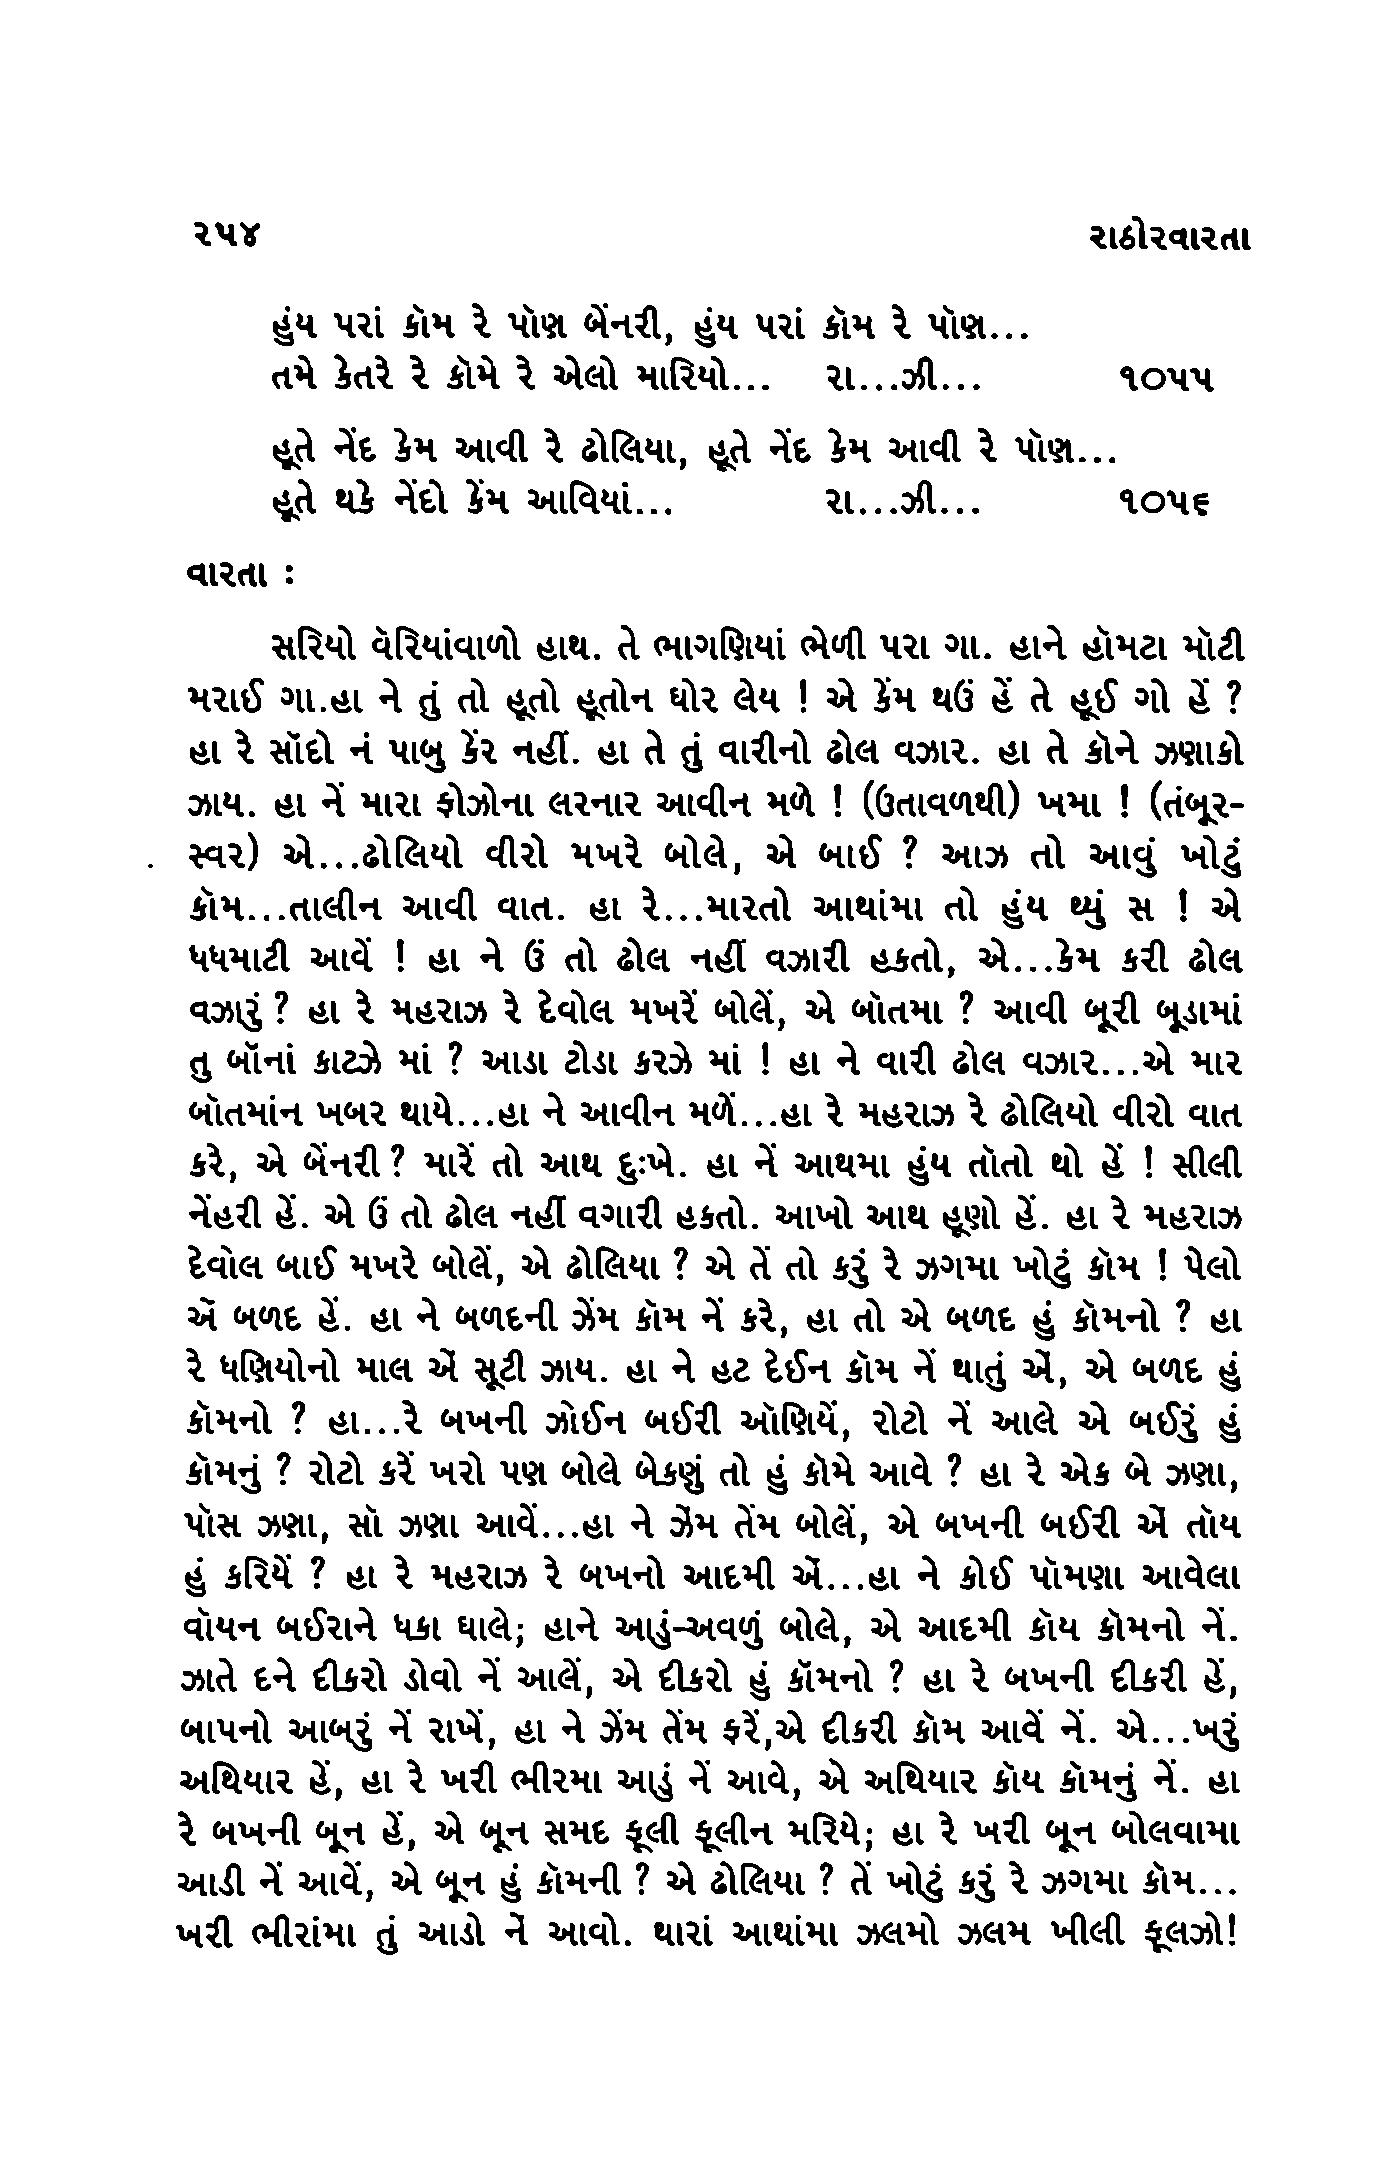 ૨૫૪ રાઠોરવારતા
હુંય પરાં કૉમ રે પૉણ બેંનરી, હુંય પરાં કૉમ રે પૉણ...
તમે કેતરે રે કૉમે રે એલો મારિયો... રા...ઝી... ૧૦૫૫
હૂતે નેંદ કેમ આવી રે ઢોલિયા, હૂતે નેંદ કેમ આવી રે પૉણ...
હૂતે થકે નેંદો કેંમ આવિયાં... રા...ઝી... ૧૦૫૬
વારતા :
સરિયો વૅરિયાંવાળો હાથ. તે ભાગણિયાં ભેળી પરા ગા. હાને હૉમટા મૉટી
મરાઈ ગા.હા ને તું તો હૂતો હૂતોન ઘોર લેય ! એ કેંમ થઉં હેં તે હૂઈ ગો હેં ?
હા રે સૉદો નં પાબુ કેંર નહીં. હા તે તું વારીનો ઢોલ વઝાર. હા તે કૉને ઝણાકો
ઝાય. હા નેં મારા ફોઝોના લરનાર આવીન મળે ! (ઉતાવળથી) ખમા ! (તંબૂર-
સ્વર) એ...ઢોલિયો વીરો મખરે બોલે, એ બાઈ ? આઝ તો આવું ખોટું
કૉમ...તાલીન આવી વાત. હા રે...મારતો આથાંમા તો હુંય થ્યું સ ! એ
ધધમાટી આવેં ! હા ને ઉં તો ઢોલ નહીં વઝારી હકતો, એ...કેમ કરી ઢોલ
વઝારું ? હા રે મહરાઝ રે દેવોલ મખરેં બોલેં, એ બૉતમા ? આવી બૂરી બૂડામાં
તુ બૉનાં કાટઝે માં ? આડા ટોડા કરઝે માં ! હા ને વારી ઢોલ વઝાર...એ માર
બૉતમાંન ખબર થાયે...હા ને આવીન મળેં...હા રે મહરાઝ રે ઢોલિયો વીરો વાત
કરે, એ બેંનરી ? મારેં તો આથ દુઃખે. હા નેં આથમા હુંય તૉતો થો હેં ! સીલી
નેંહરી હેં. એ ઉં તો ઢોલ નહીં વગારી હકતો. આખો આથ હૂણો હેં. હા રે મહરાઝ
દેવોલ બાઈ મખરે બોલેં, એ ઢોલિયા ? એ તેં તો કરું રે ઝગમા ખોટું કૉમ ! પેલો
એં બળદ હેં. હા ને બળદની ઝેંમ કૉમ નેં કરે, હા તો એ બળદ હું કૉમનો ? હા
રે ધણિયોનો માલ એં સૂટી ઝાય. હા ને હટ દેઈન કૉમ નેં થાતું એં, એ બળદ હું
કૉમનો ? હા...રે બખની ઝોઈન બઈરી ઑણિયેં, રોટો નેં આલે એ બઈરું હું
કૉમનું ? રોટો કરેં ખરો પણ બોલે બેકણું તો હું કૉમે આવે ? હા રે એક બે ઝણા,
પૉસ ઝણા, સૉ ઝણા આવેં...હા ને ઝેંમ તેંમ બોલેં, એ બખની બઈરી એં તૉય
હું કરિયેં ? હા રે મહરાઝ રે બખનો આદમી એં...હા ને કોઈ પૉમણા આવેલા
વૉયન બઈરાને ધકા ઘાલે; હાને આડું-અવળું બોલે, એ આદમી કૉય કૉમનો નેં.
ઝાતે દને દીકરો ડોવો નેં આલેં, એ દીકરો હું કૉમનો ? હા રે બખની દીકરી હેં,
બાપનો આબરું નેં રાખેં, હા ને ઝેંમ તેંમ ફરેં,એ દીકરી કૉમ આવેં નેં. એ...ખરું
અથિયાર હેં, હા રે ખરી ભીરમા આડું નેં આવે, એ અથિયાર કૉય કૉમનું નેં. હા
રે બખની બૂન હેં, એ બૂન સમદ ફૂલી ફૂલીન મરિયે; હા રે ખરી બૂન બોલવામા
આડી નેં આવેં, એ બૂન હું કૉમની ? એ ઢોલિયા ? તેં ખોટું કરું રે ઝગમા કૉમ...
ખરી ભીરાંમા તું આડો નેં આવો. થારાં આથાંમા ઝલમો ઝલમ ખીલી ફૂલઝો!